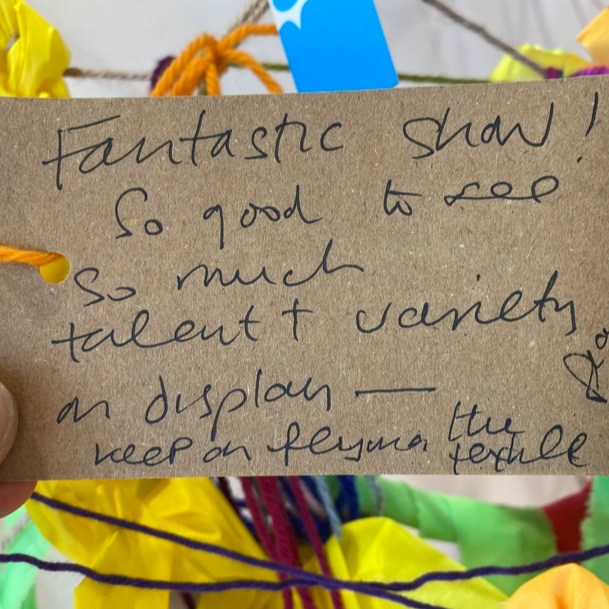 Fantastic show!
So good to see
so much
talent + variety
on display —
keep on flying the
textile